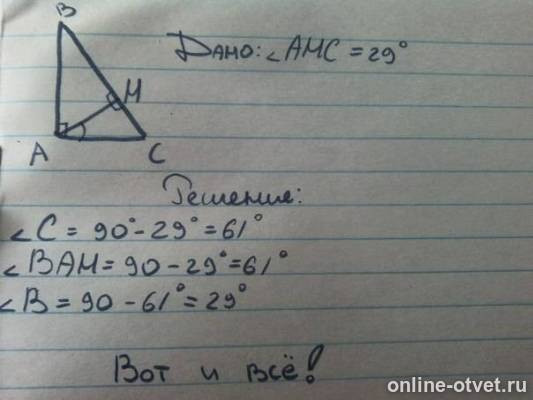 B
Дано: ∠AMC = 29°
M
A
C
Решение:
∠C = 90° - 29° = 61°
∠BAM = 90 - 29° = 61°
∠B = 90 - 61° = 29°
Вот и всё!
online-otvet.ru